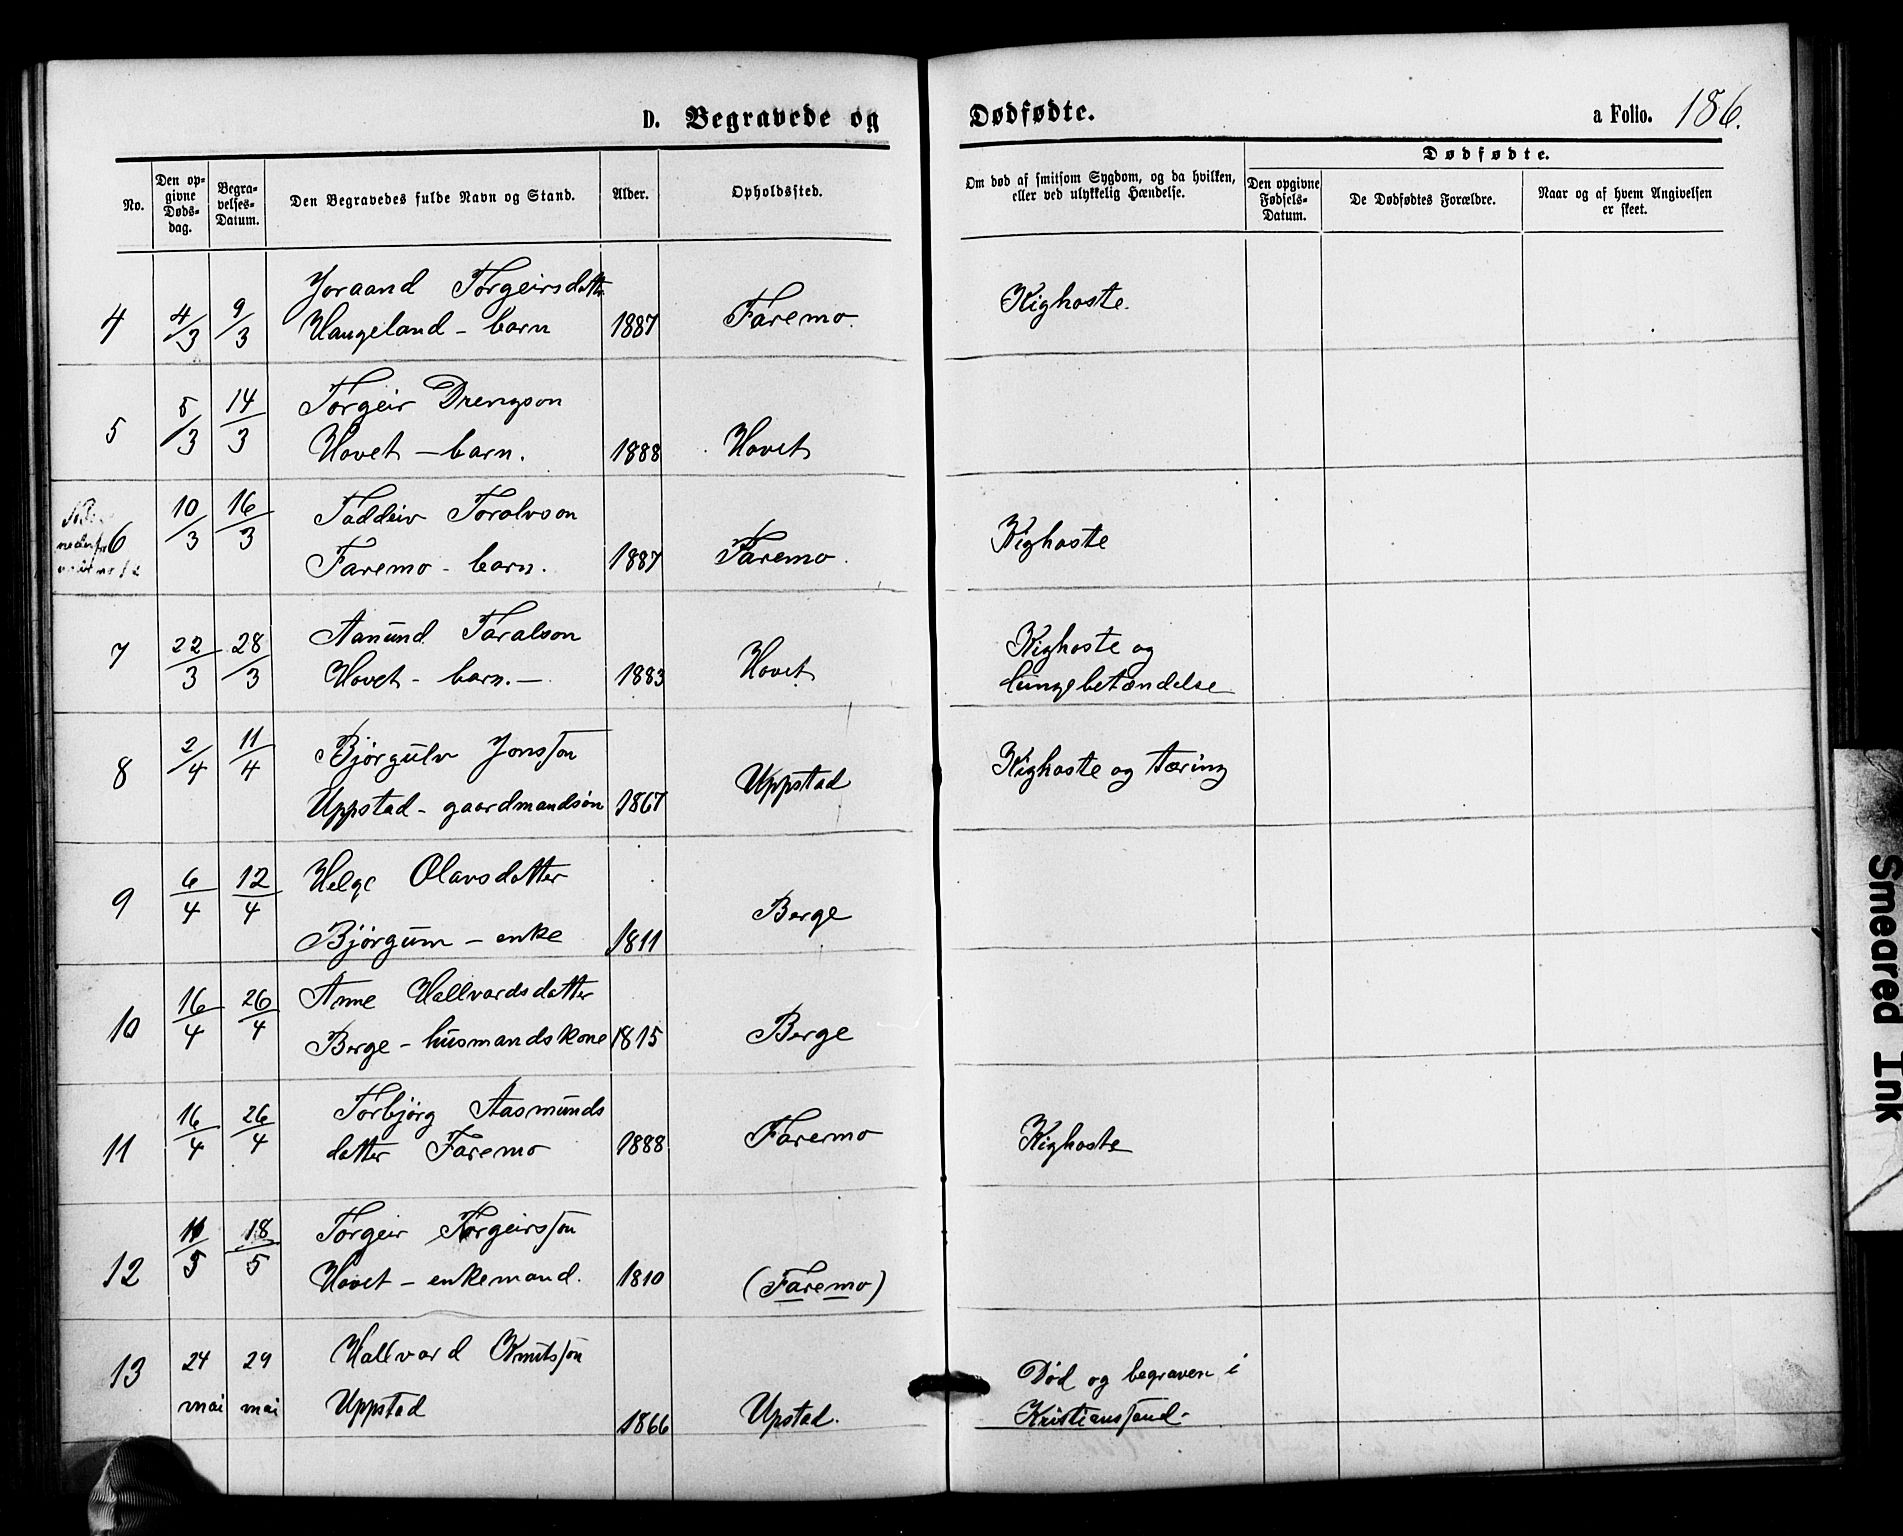 D. Begravede og Dødfødte. a Folio. 186.
No.
Den opgivne Dødsdag.
Begravelses-Datum.
Den Begravedes fulde Navn og Stand.
Alder.
Opholdssted.
Om død af smitsom Sygdom, og da hvilken,
eller ved ulykkelig Hændelse.
Dødfødte.
Den opgivne Fødsels-Datum.
De Dødfødtes Forældre.
Naar og af hvem Angivelsen
er skeet.
4 4/3 9/3 Joraand Torgeirsdatter
Haugeland - barn 1887 Faremo. Kighoste.
5 5/3 14/3 Torgeir Drengson
Hovet - barn. 1888 Hovet
6 10/3 16/3 Taddeiv Toralvson
Faremo - barn. 1887 Faremo. Kighoste
7 22/3 28/3 Aanund Taralson
Hovet - barn. - 1883 Hovet Kighoste og
lungebetændelse
8 2/4 11/4 Bjørgulv Jonsson
Uppstad - gaardmandsøn 1867 Uppstad Kighoste og tæring
9 6/4 12/4 Helge Olavsdatter
Bjørgum - enke 1811 Berge
10 16/4 26/4 Anne Hallvardsdatter
Berge - husmandskone 1815 Berge
11 16/4 26/4 Torbjørg Aasmunds
datter Faremo 1888 Faremo Kighoste
12 11/5 18/5 Torgeir Torgeirsson
Hovet - enkemand. 1810 (Faremo)
13 24 mai 29 mai Hallvard Knutsson
Uppstad 1866 Upstad. Død og begraven i
Kristianssand.
Smeared Ink